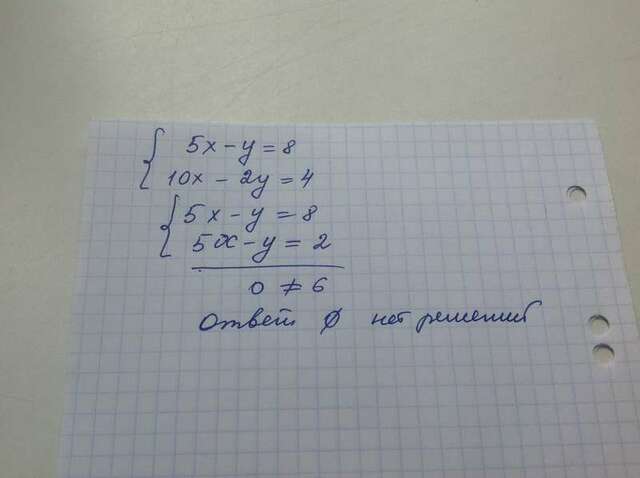 5x - y = 8
10x - 2y = 4
5x - y = 8
5x - y = 2
0 ≠ 6
Ответ ∅ нет решений